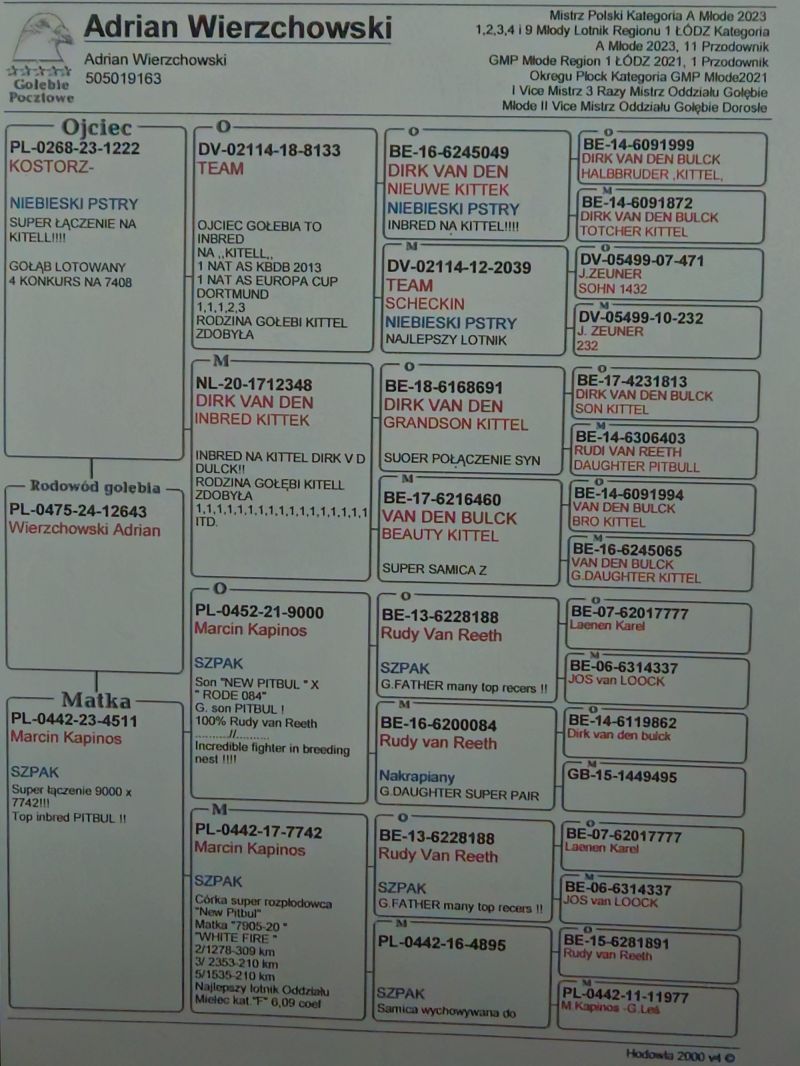 Adrian Wierzchowski
Adrian Wierzchowski
505019163
Gołębie
Pocztowe
Mistrz Polski Kategoria A Młode 2023
1,2,3,4 i 9 Młody Lotnik Regionu 1 ŁÓDZ Kategoria
A Młode 2023, 11 Przodownik
GMP Młode Region 1 ŁÓDZ 2021, 1 Przodownik
Okregu Płock Kategoria GMP Młode2021
I Vice Mistrz 3 Razy Mistrz Oddziału Gołębie
Młode II Vice Mistrz Oddziału Gołębie Dorosłe
Ojciec
PL-0268-23-1222
KOSTORZ-
NIEBIESKI PSTRY
SUPER ŁĄCZENIE NA
KITELL!!!!
GOŁĄB LOTOWANY
4 KONKURS NA 7408
Rodowód gołębia
PL-0475-24-12643
Wierzchowski Adrian
Matka
PL-0442-23-4511
Marcin Kapinos
SZPAK
Super łączenie 9000 x
7742!!!
Top inbred PITBUL !!
O
DV-02114-18-8133
TEAM
OJCIEC GOŁEBIA TO
INBRED
NA ,,KITELL,,
1 NAT AS KBDB 2013
1 NAT AS EUROPA CUP
DORTMUND
1,1,1,2,3
RODZINA GOŁEBI KITTEL
ZDOBYŁA
M
NL-20-1712348
DIRK VAN DEN
INBRED KITTEK
INBRED NA KITTEL DIRK V D
DULCK!!
RODZINA GOŁĘBI KITELL
ZDOBYŁA
1,1,1,1,1,1,1,1,1,1,1,1,1,1,1,1,1,1
ITD.
O
PL-0452-21-9000
Marcin Kapinos
SZPAK
Son "NEW PITBUL " X
" RODE 084"
G. son PITBUL !
100% Rudy van Reeth
..........//..........
Incredible fighter in breeding
nest !!!!
M
PL-0442-17-7742
Marcin Kapinos
SZPAK
Córka super rozpłodowca
"New Pitbul"
Matka "7905-20 "
"WHITE FIRE "
2/1278-309 km
3/ 2353-210 km
5/1535-210 km
Najlepszy lotnik Oddziału
Mielec kat "F" 6,09 coef
O
BE-16-6245049
DIRK VAN DEN
NIEUWE KITTEK
NIEBIESKI PSTRY
INBRED NA KITTEL!!!!
M
DV-02114-12-2039
TEAM
SCHECKIN
NIEBIESKI PSTRY
NAJLEPSZY LOTNIK
O
BE-18-6168691
DIRK VAN DEN
GRANDSON KITTEL
SUOER POŁĄCZENIE SYN
M
BE-17-6216460
VAN DEN BULCK
BEAUTY KITTEL
SUPER SAMICA Z
O
BE-13-6228188
Rudy Van Reeth
SZPAK
G.FATHER many top recers !!
M
BE-16-6200084
Rudy van Reeth
Nakrapiany
G.DAUGHTER SUPER PAIR
O
BE-13-6228188
Rudy Van Reeth
SZPAK
G.FATHER many top recers !!
M
PL-0442-16-4895
SZPAK
Samica wychowywana do
O
BE-14-6091999
DIRK VAN DEN BULCK
HALBBRUDER ,KITTEL,
M
BE-14-6091872
DIRK VAN DEN BULCK
TOTCHER KITTEL
O
DV-05499-07-471
J.ZEUNER
SOHN 1432
M
DV-05499-10-232
J. ZEUNER
232
O
BE-17-4231813
DIRK VAN DEN BULCK
SON KITTEL
M
BE-14-6306403
RUDI VAN REETH
DAUGHTER PITBULL
O
BE-14-6091994
VAN DEN BULCK
BRO KITTEL
M
BE-16-6245065
VAN DEN BULCK
G.DAUGHTER KITTEL
O
BE-07-62017777
Laenen Karel
M
BE-06-6314337
JOS van LOOCK
O
BE-14-6119862
Dirk van den bulck
M
GB-15-1449495
O
BE-07-62017777
Laenen Karel
M
BE-06-6314337
JOS van LOOCK
O
BE-15-6281891
Rudy van Reeth
M
PL-0442-11-11977
M.Kapinos -G.Leś
Hodowla 2000 v4 ©